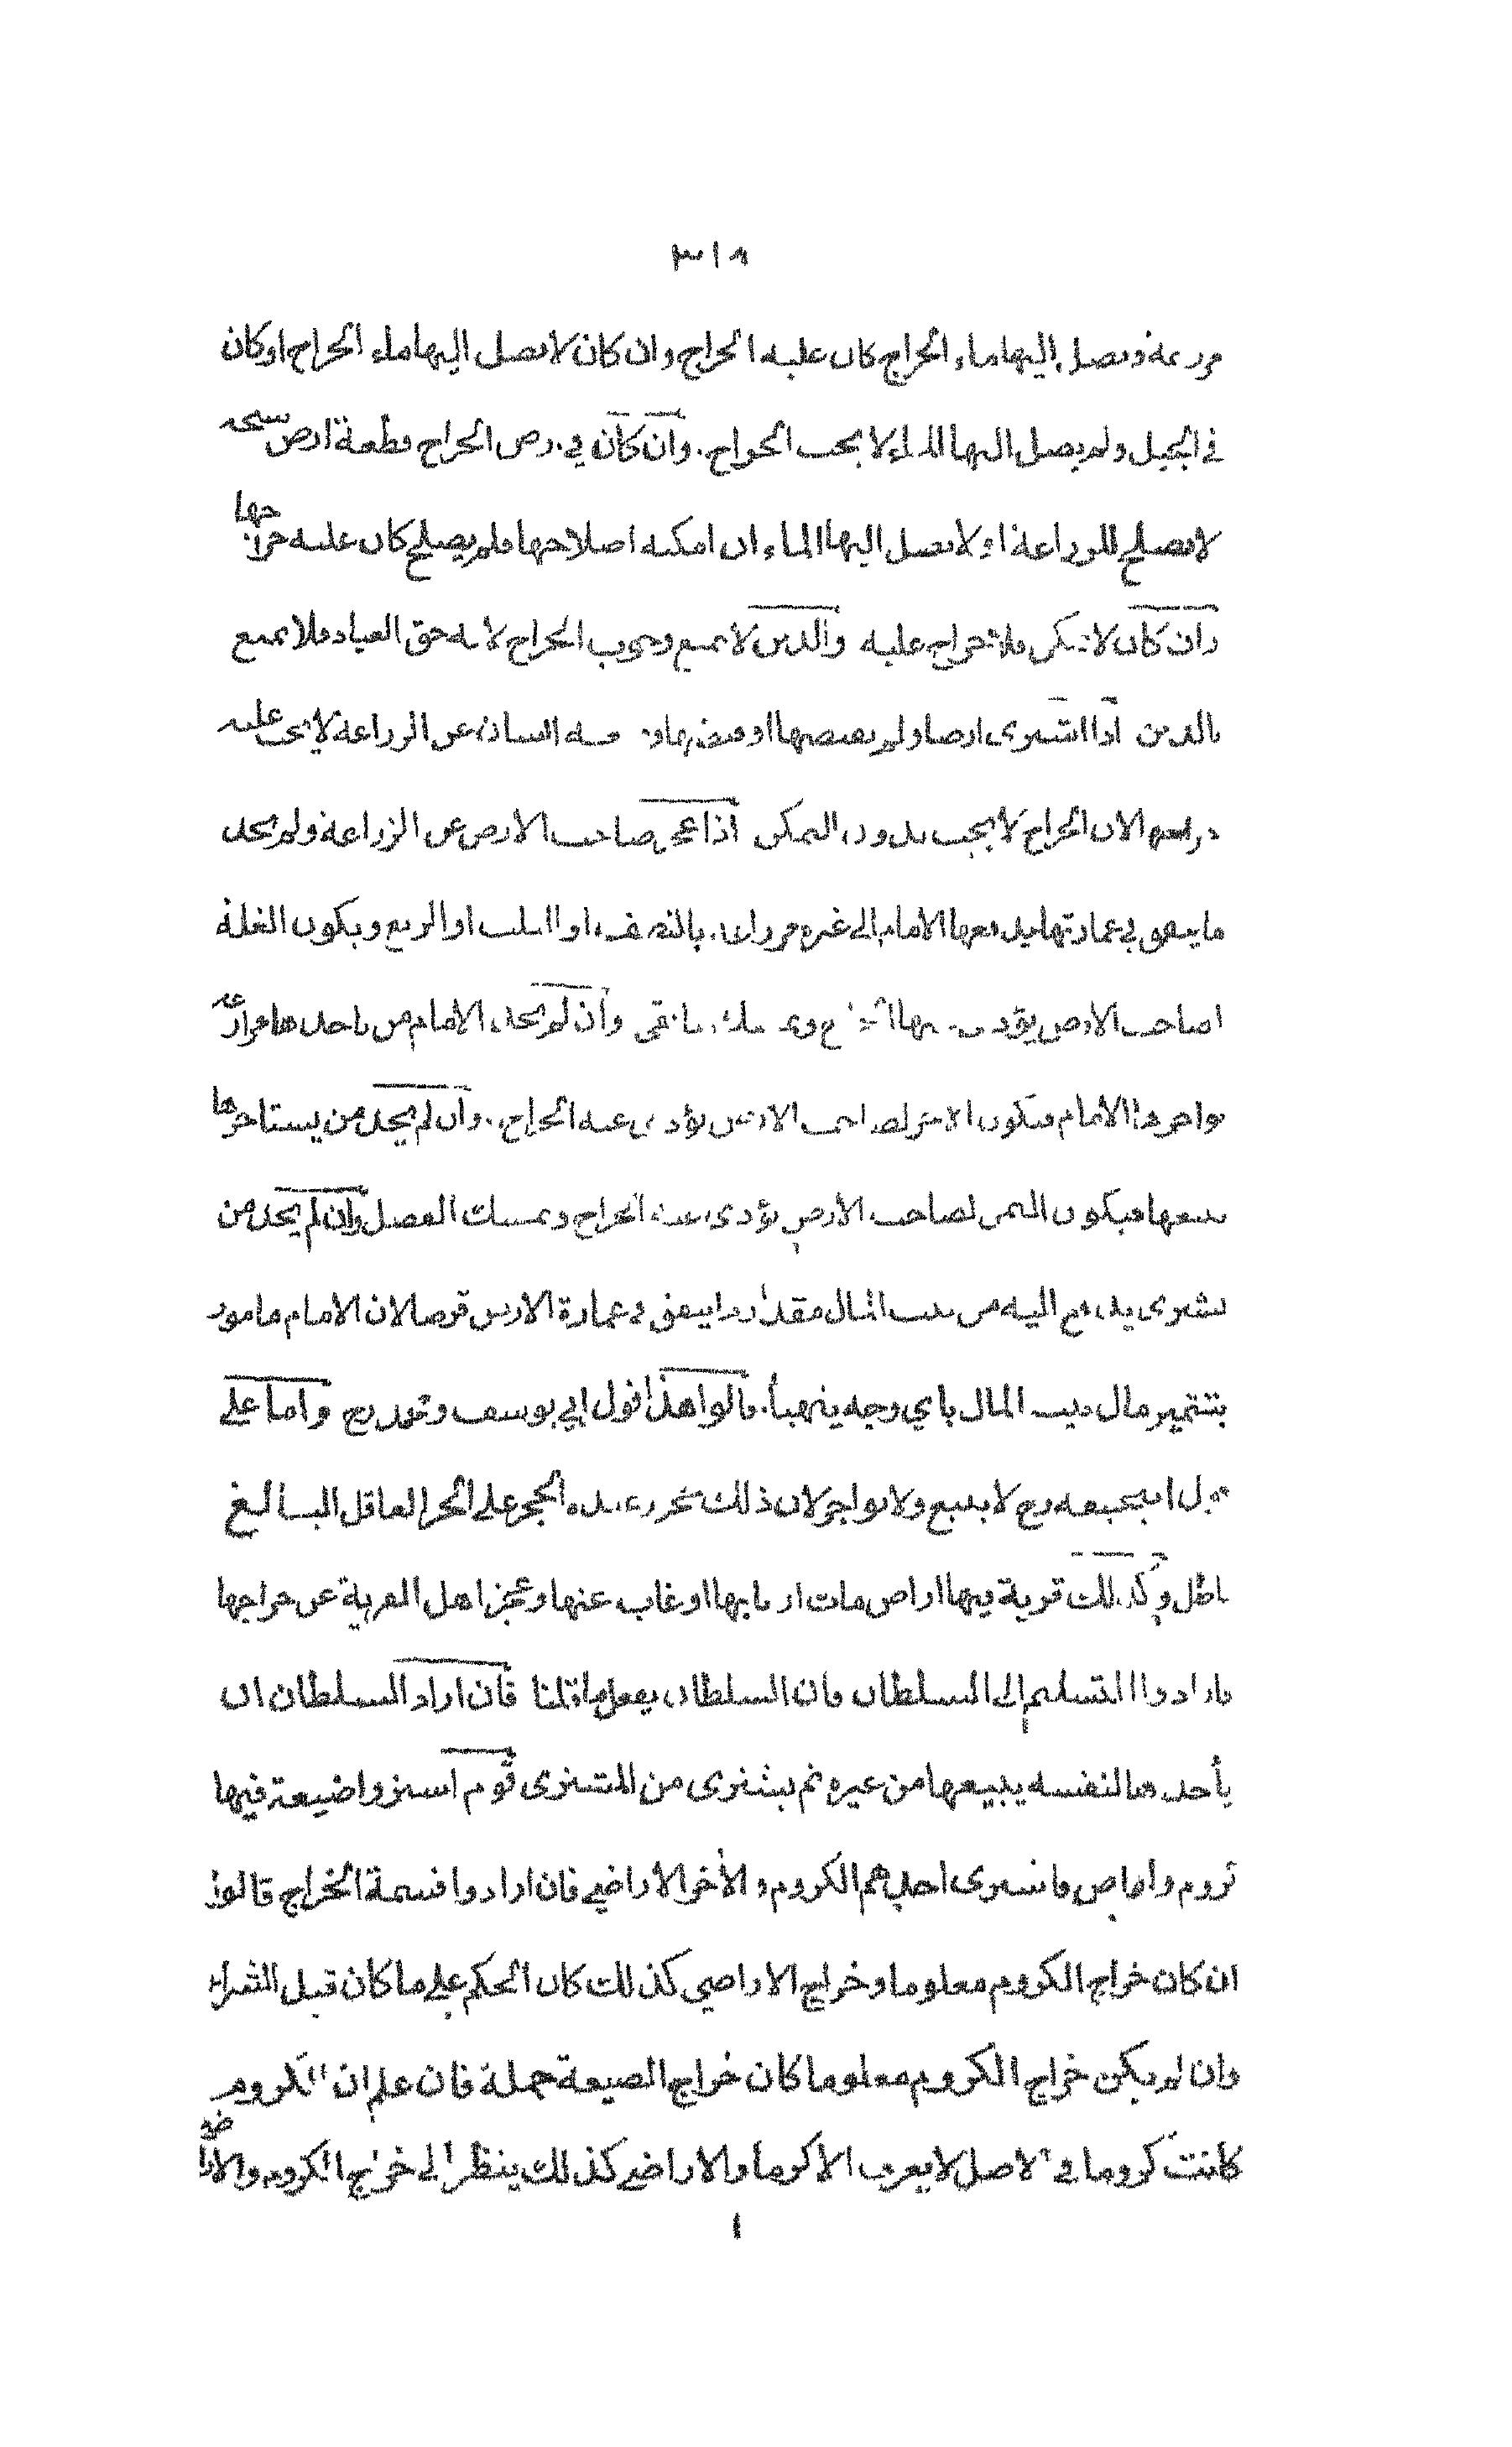 ٣١٨
مزرعة ويصل اليها ماء الخراج كان عليه الخراج وان كان لا يصل اليها ماء الخراج اوكان
في الجبل ولم يصل اليها الماء لا يجب الخراج. وان كان في ارض الخراج قطعة ارض سبخه
لا تصلح للزراعة او لا يصل اليها الماء ان امكنه اصلاحها فلم يصلح كان عليه خراجها
وان كان لا يمكن فلا خراج عليه والدين لا يمنع وجوب الخراج لانه حق العباد فلا يمنع
بالدين اذا اشترى ارضا ولم يقبضها او قبضها و منعه انسان عن الزراعة لا يجب عليه
خراجها لان الخراج لا يجب بدون التمكن اذا عجز صاحب الارض عن الزراعة ولم يجد
ما ينفق في عمارتها يدفعها الامام الى غيره مزارعة بالنصف او الثلث او الربع ويكون الغلة
لصاحب الارض يؤدي منها الخراج ويمسك ما بقي وان لم يجد الامام من ياخذها مزارعة
يواجرها الامام فيكون الاجر لصاحب الارض يؤدى عنه الخراج. وان لم يجد من يستاجرها
يبيعها فيكون الثمن لصاحب الارض يؤدى عنه الخراج ويمسك الفضل وان لم يجد من
يشترى يدفع اليه من بيت المال مقدار ما ينفق في عمارة الارض قرضا لان الامام مامور
بتثمير مال بيت المال باي وجه يتهيأ. قالوا هذا قول ابي يوسف ومحمد رح واما على
قول ابيحنيفه رح لا يبيع ولا يواجر لان ذلك حجر وعنده الحجر على الحر العاقل البالغ
باطل وكذلك قرية فيها اراض مات اربابها او غاب عنها وعجز اهل القرية عن خراجها
فارادوا التسليم الى السلطان فان السلطان يفعل ما قلنا فان اراد السلطان ان
يأخذها لنفسه يبيعها من غيره ثم يشترى من المشترى قوم اشتروا ضيعة فيها
كروم واراض فاشترى احدهم الكروم والآخر الاراضي فان ارادوا قسمة الخراج قالوا
ان كان خراج الكروم معلوما وخراج الاراضي كذلك كان الحكم على ما كان قبل الشراء
وان لم يكن خراج الكروم معلوما كان خراج الضيعة جملة فان علم ان الكروم
كانت كروما في الاصل لا يعرف الا كرما والاراضي كذلك ينظر الى خراج الكروم والاراضي